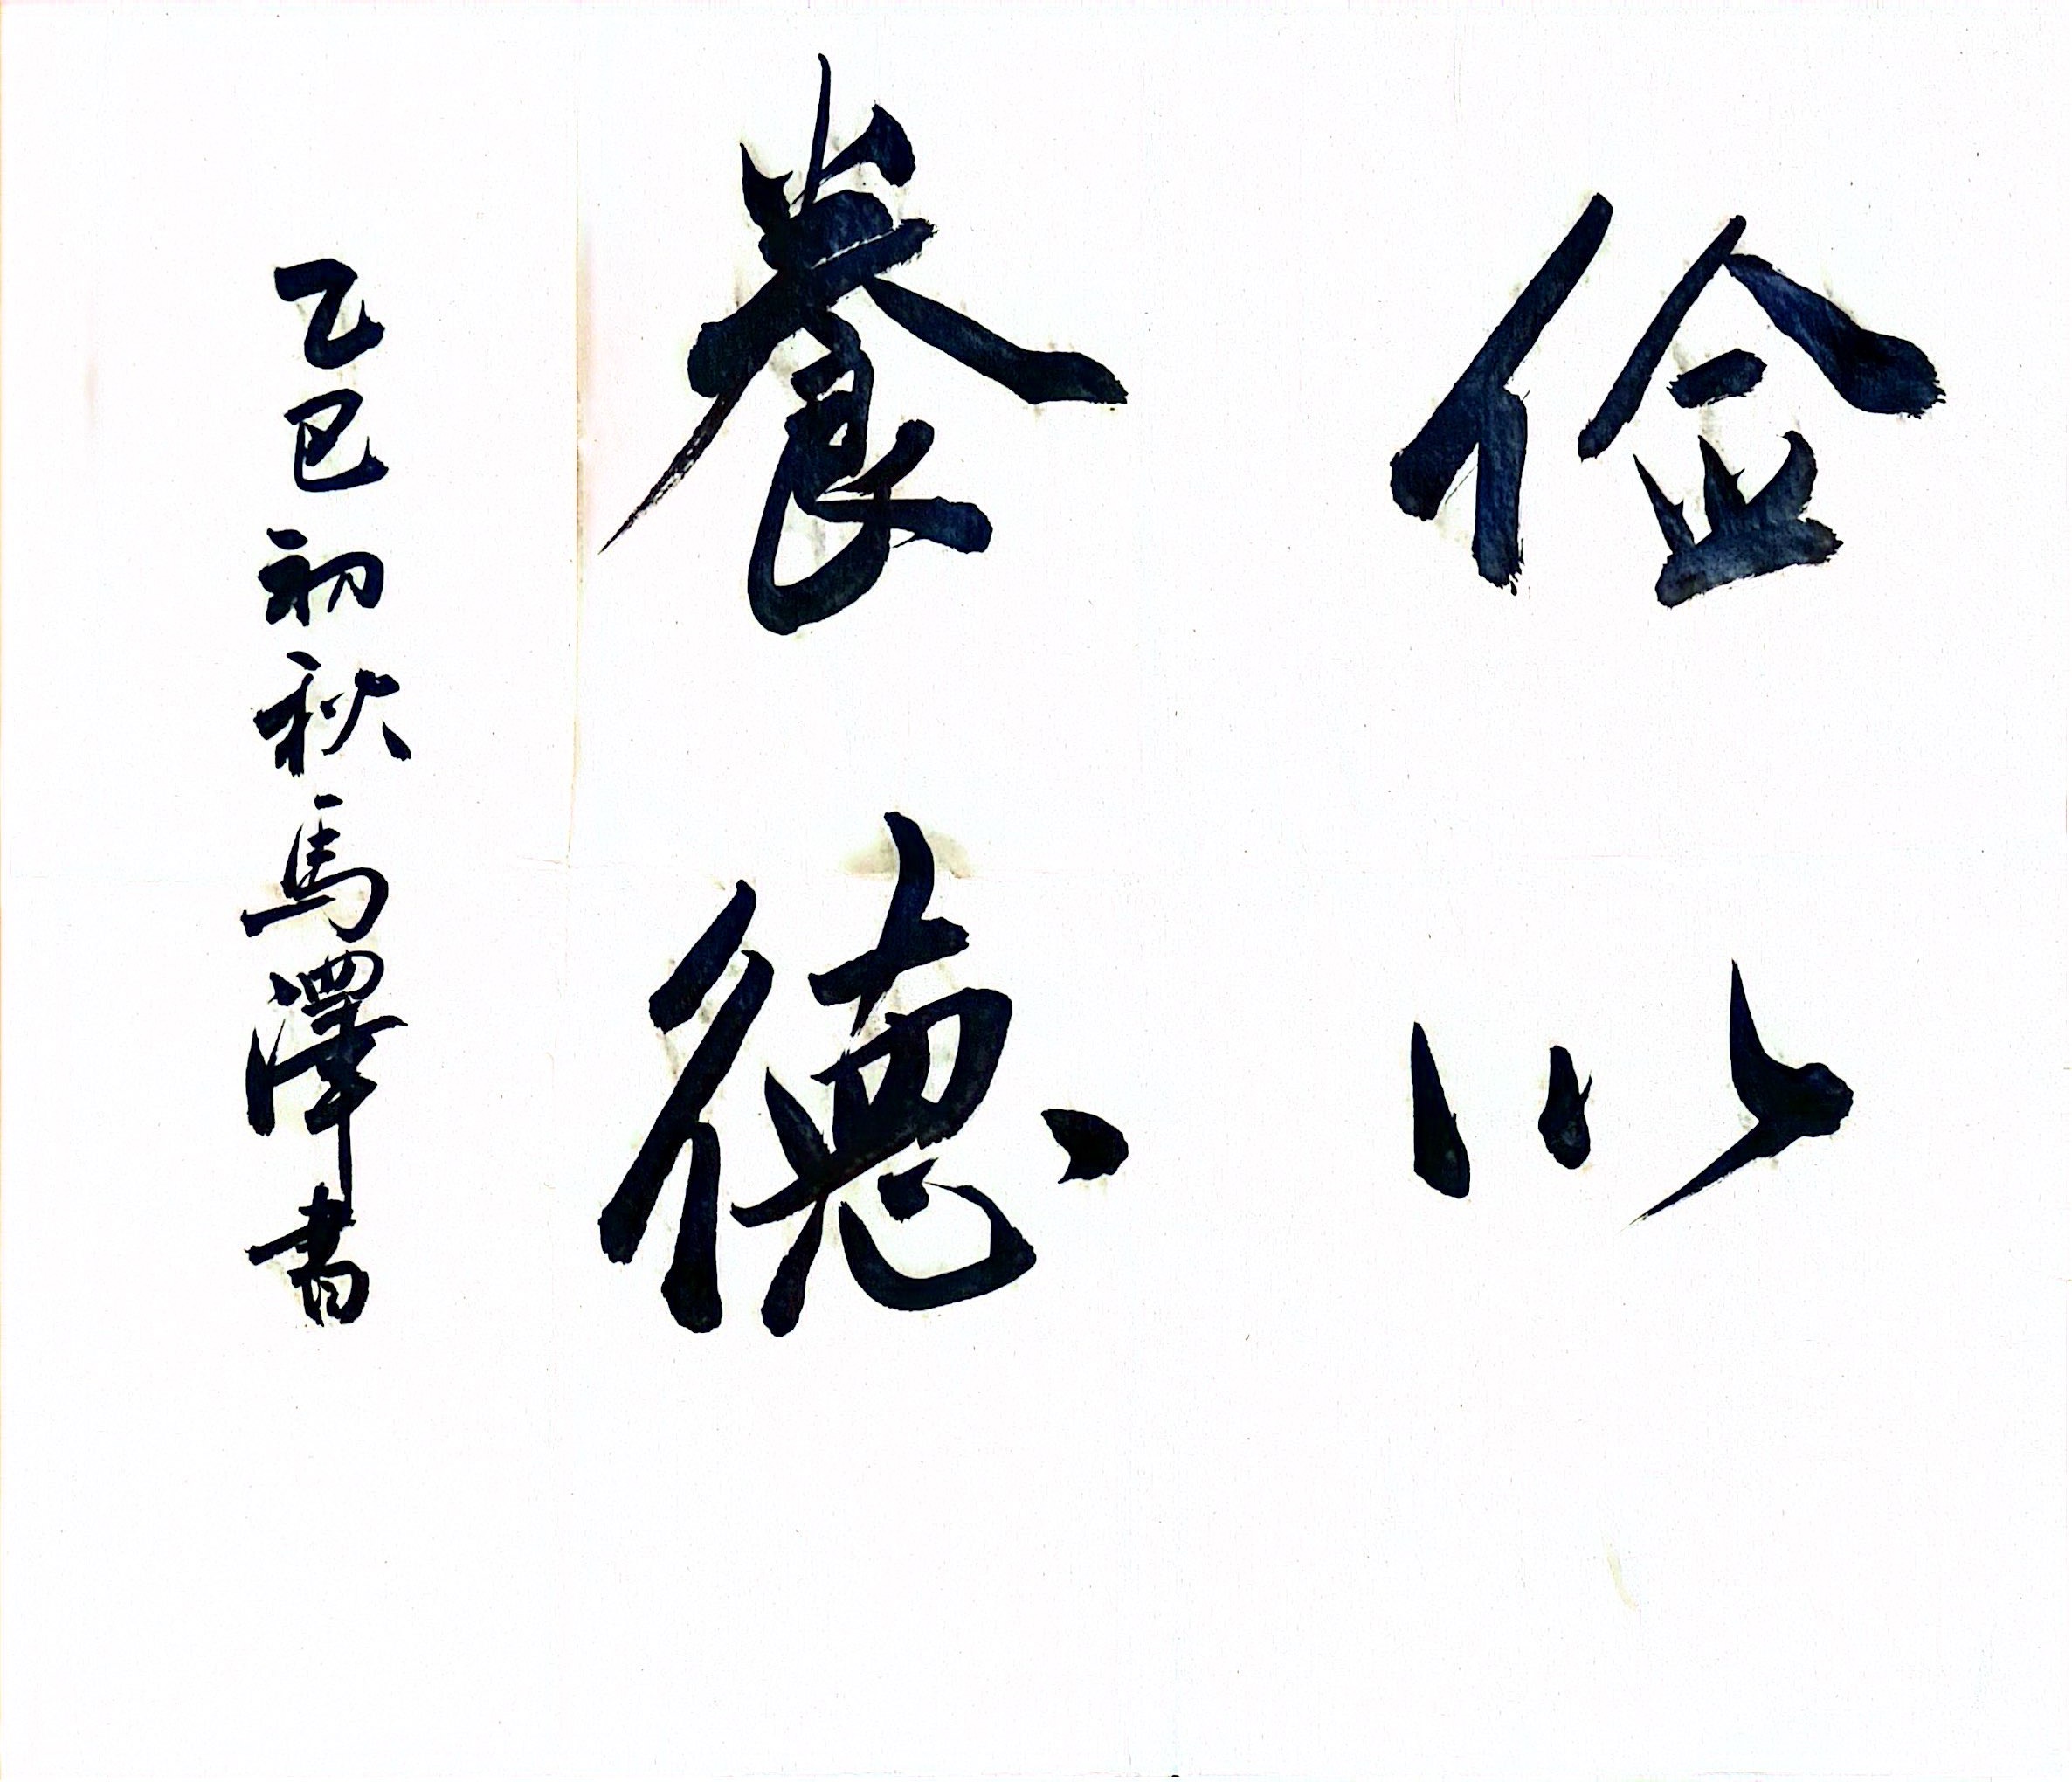 俭以
養德
乙巳初秋馬澤書